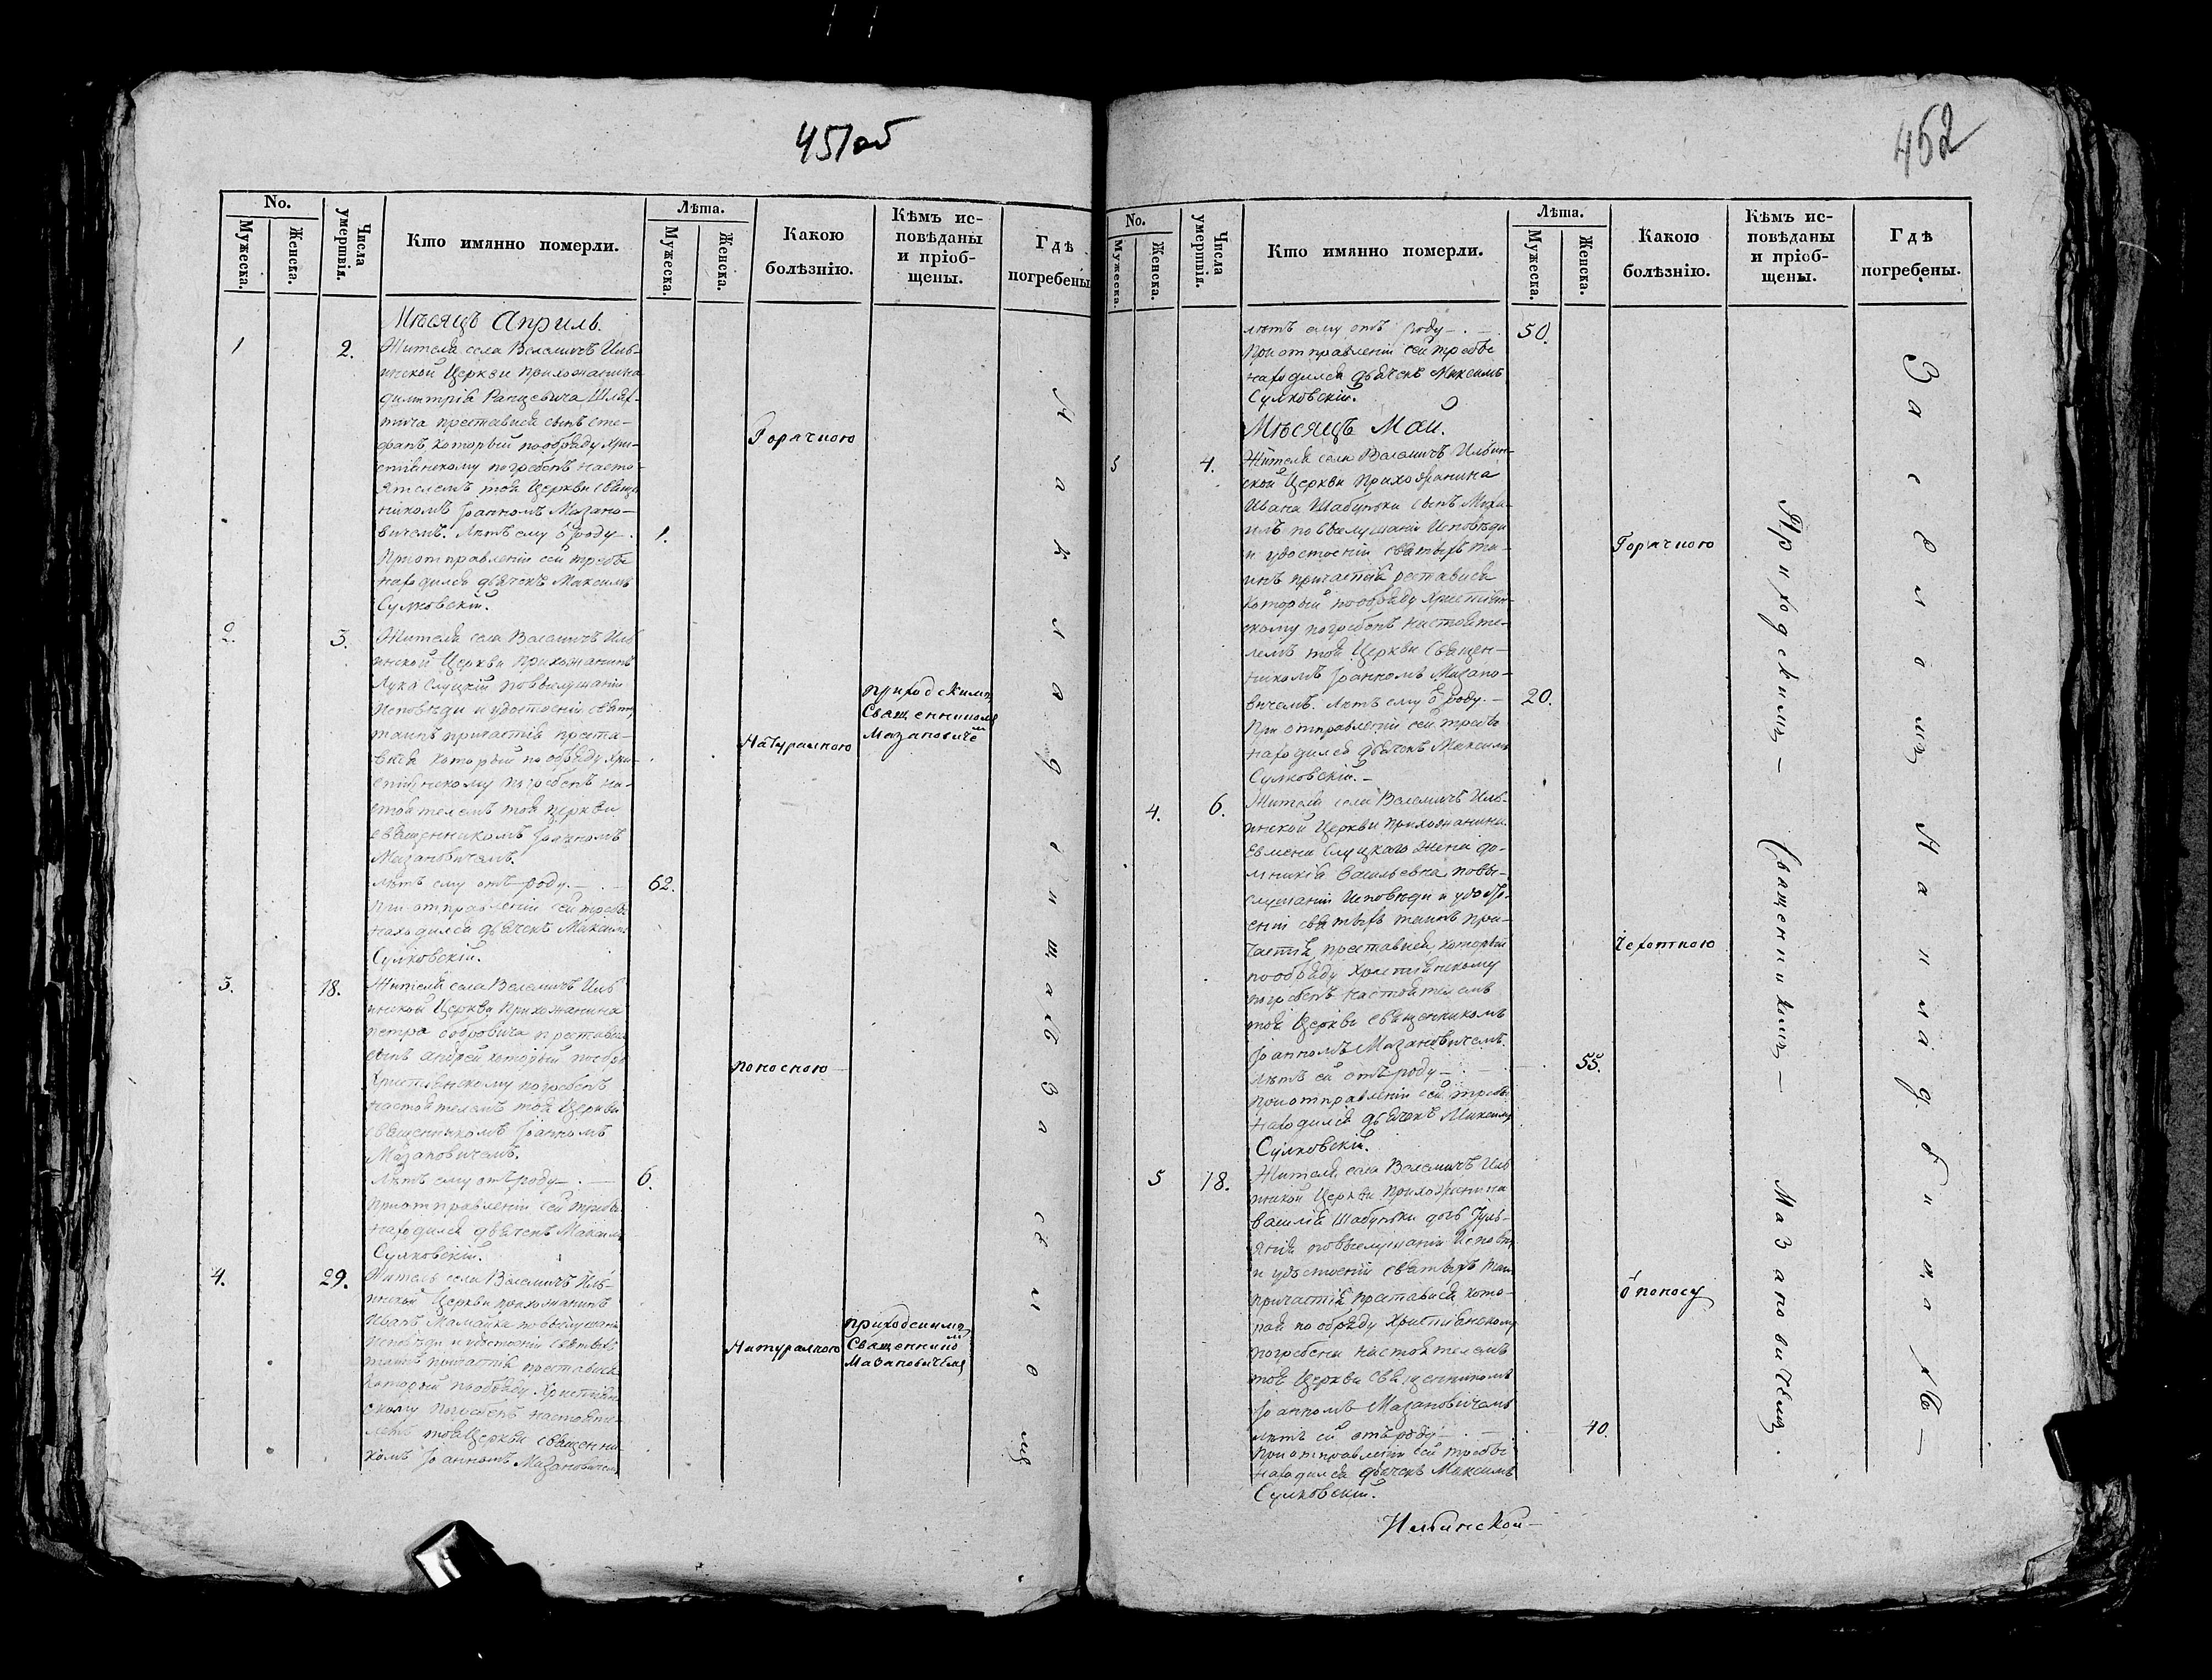 451об
No.
Мужеска.
Женска.
Числа умершвія.
Кто имянно померли.
Лѣта.
Мужеска.
Женска.
Какою болѣзнію.
Кѣмъ ис-
повѣданы
и пріоб-
щены.
Гдѣ
погребены
Мѣсяцъ Априль.
1 2. Жителя села Велемичъ Иль-
инской Церкви Прихожанина
димитрія Ранцевича Шлях-
тича преставися сынъ Сте-
фанъ, который пообряду Хри-
стіянскому погребенъ насто-
ятелемъ тоя Церкви Свяще
никомъ Іоанномъ Мазано-
вичемъ. Лѣтъ ему ѿ роду 1.
При отправленіи сей требѣ
находился дьячекъ Максимъ
Сулковскій.
Горячкою
2. 3. Житель села Велемичъ Иль
инской Церкви Прихожанинъ
Лука Слуцкій повыслушаніи
Исповѣди и удостоеніи святы
таинъ причастія преста-
вися который по обряду Хри-
стіянскому погребенъ на-
стоятелемъ тоя Церкви
священникомъ Іоанномъ
Мазановичемъ.
лѣтъ ему отъ роду. 62.
При отправленіи сей требѣ
находился дьячекъ Максимъ
Сулковскій.
Натуралною
приходскимъ
Священникомъ
Мазановичемъ
3. 18. Жителя села Велемичъ Иль
инской Церкви Прихожанина
петра бобровича преставися
сынъ андрей который пообря
Христіянскому погребенъ
настоятелемъ тоя Церкви
священникомъ Іоанномъ
Мазановичемъ.
лѣтъ ему отъ роду 6.
При отправленіи сей требѣ
находился дьячекъ Максимъ
Сулковскій.
поносною
4. 29. Житель села Велемичъ Иль-
инской Церкви прихожанинъ
Иванъ Мамайка по выслушаніи
Исповѣди и удостоеніи святыхъ
таинъ причастія преставися
который пообряду Христіян
скому погребенъ настояте-
лемъ тоя Церкви священни
комъ Іоанномъ Мазановичемъ
Натуралною
приходскимъ
Священнико
Мазановичемъ
На кладбищахъ За селомъ
452
No.
Мужеска.
Женска.
Числа умершвія.
Кто имянно померли.
Лѣта.
Мужеска.
Женска.
Какою
болѣзнію.
Кѣмъ ис-
повѣданы
и пріоб-
щены.
Гдѣ
погребены.
лѣтъ ему отъ роду 50.
При отправленіи сей требѣ
находился дьячекъ Максимъ
Сулковскій.
Мѣсяцъ Май.
5 4. Жителя села Велемичъ Ильин-
ской Церкви Прихожанина
Ивана Шабуньки сынъ Миха-
илъ по выслушаніи Исповѣди
и удостоеніи святыхъ та-
инъ причастія реставися
который пообряду Христіян-
скому погребенъ настояте-
лемъ тоя Церкви Священ-
никомъ Іоанномъ Мазано-
вичемъ. Лѣтъ ему ѿ роду. 20.
При отправленіи сей требѣ
находился дьячекъ Максимъ
Сулковскій.
Горячкою
4. 6. Жителя села Велемичъ Иль-
инской Церкви Прихожанина
Евмена Слуцкаго Жена до-
мникія васильевна, повы-
слушаніи Исповѣди и удосто-
еніи святыхъ таинъ при-
частія, преставися, который
пообряду Христіянскому
погребенъ настоятелемъ
тоя Церкви священникомъ
Іоанномъ Мазановичемъ
лѣтъ ей отъ роду 55.
При отправленіи сей требѣ
находился дьячекъ Максимъ
Сулковскій.
Чехотною
5 18. Жителя села Велемичъ Иль
инской Церкви Прихожанина
василія Шабуньки дочь Іуль-
янія повыслушаніи Исповѣд
и удостоеніи святыхъ Таин
причастія преставися, кото-
рая по обряду Христіянскому
погребена настоятелемъ
тоя Церкви священникомъ
Іоанномъ Мазановичемъ
лѣтъ ей отъ роду 40.
При отправленіи сей требѣ
находился дьячекъ Максимъ
Сулковскій.
ѿ поносу
Приходскимъ Священникомъ Мазановичемъ.
За селомъ На кладбищахъ
Ильинской